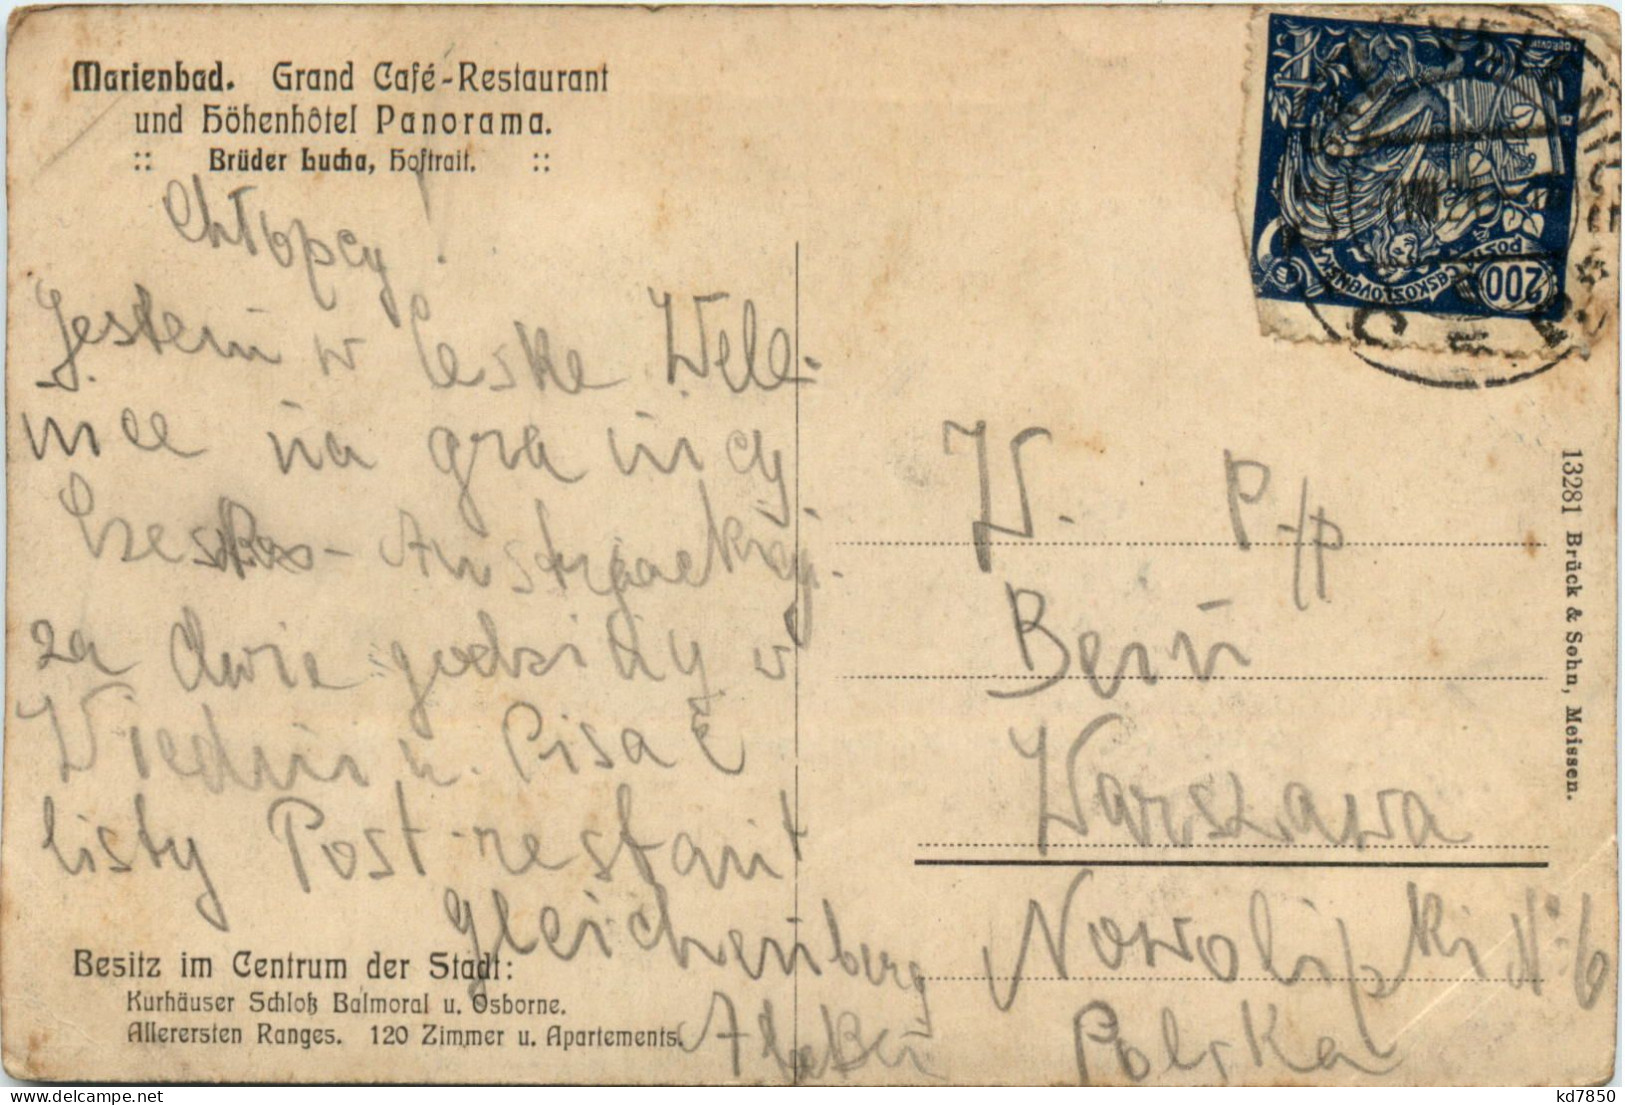 Marienbad. Grand Café-Restaurant
und Höhenhôtel Panorama.
:: Brüder Lucha, Hoftrait. ::
Chłopcy!
Jestem w Ceske Wele-
nice na granicy
Czesko-Austrjackiej.
za dwie godziny w
Wiedniu. Pisać
listy Post-restant
Gleichenberg
Besitz im Centrum der Stadt:
Kurhäuser Schloß Balmoral u. Osborne.
Allerersten Ranges. 120 Zimmer u. Apartements.
POSTA
ČESKOSLOVENSKÁ
200
W. P-p
Bein
Warszawa
Nowolipki N: 6
Polska
13281 Brück & Sohn, Meissen.
kd7850